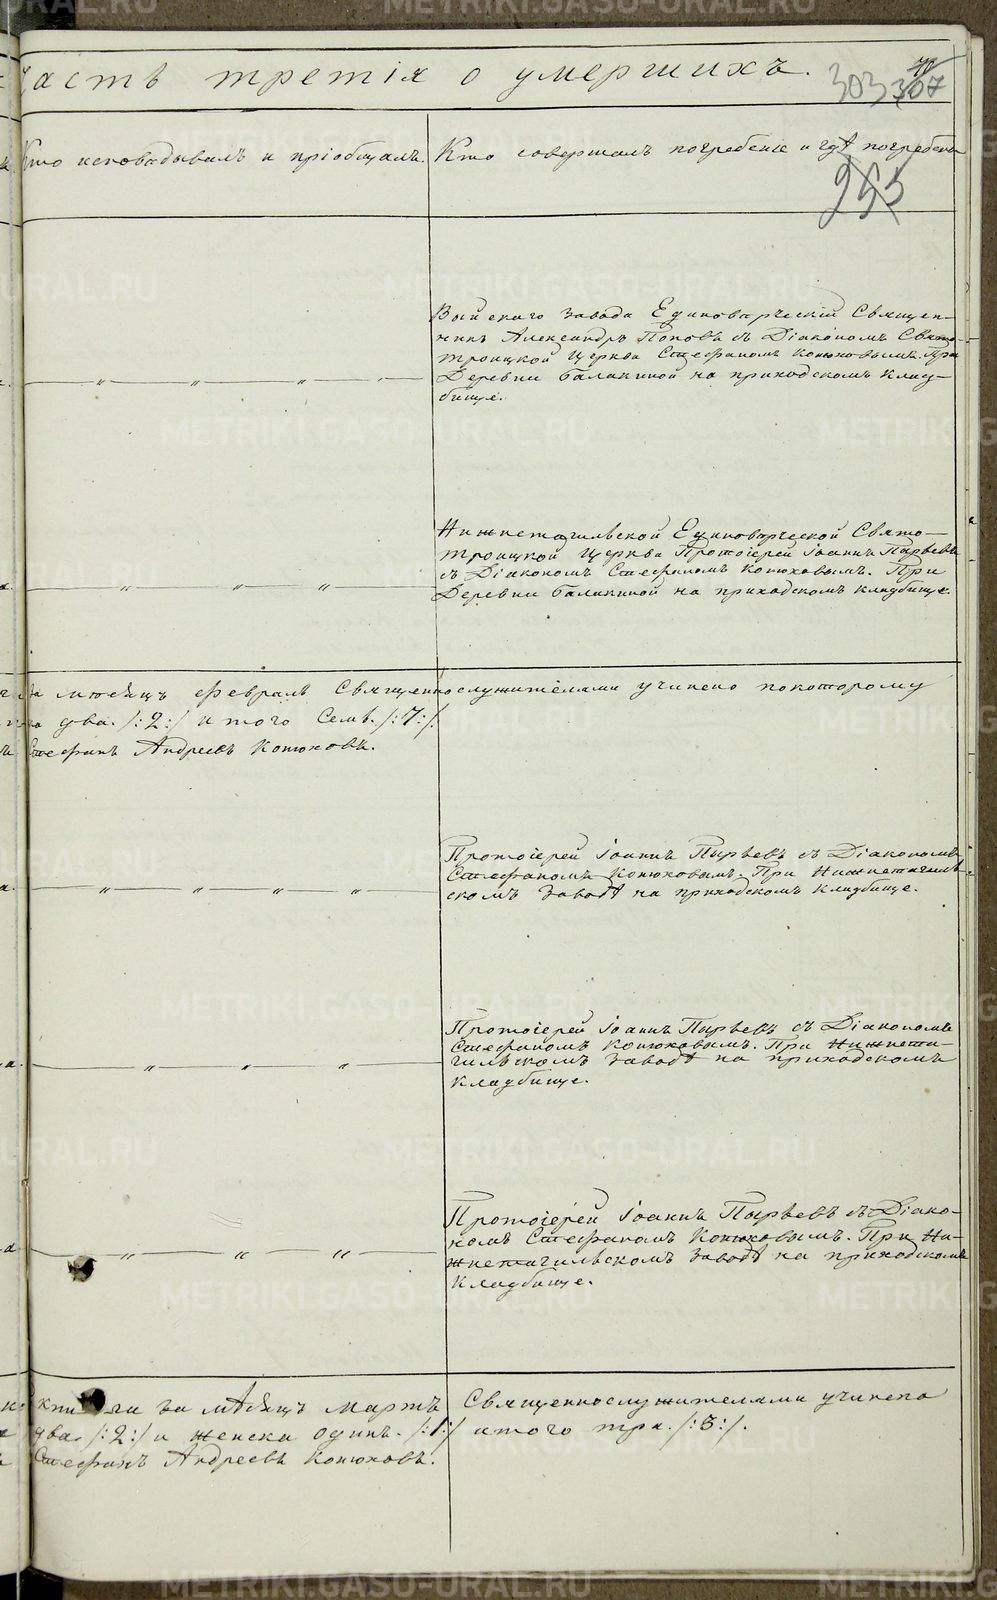 Часть третія о умершихъ.
303 307
Кто исповѣдывалъ и пріобщалъ. Кто совершалъ погребеніе и гдѣ погребены
253
Выйскаго завода Единовѣрческій Священ-
никъ Александръ Поповъ съ Діакономъ Свято-
троицкой Церкви Стефаномъ Конюховымъ. При
Деревни Балакиной на приходскомъ клад-
бище.
Нижнетагильской Единовѣрческой Свято-
троицкой Церкви Протоіерей Іоаннъ Пырьевъ
съ Діакономъ Стефаномъ Конюховымъ. При
Деревни Балакиной на приходскомъ кладбище.
за мѣсяцъ февраль Священнослужителями учинено покоторому
два. /:2:/ итого Семь. /:7:/.
Стефанъ Андреевъ Конюховъ.
Протоіерей Іоаннъ Пырьевъ съ Діакономъ
Стефаномъ Конюховымъ. При Нижнетагиль-
скомъ Заводѣ на приходскомъ кладбище.
Протоіерей Іоаннъ Пырьевъ съ Діакономъ
Стефаномъ Конюховымъ. При Нижнета-
гильскомъ Заводѣ на приходскомъ
кладбище.
Протоіерей Іоаннъ Пырьевъ съ Діако-
номъ Стефаномъ Конюховымъ. При Ни-
жнетагильскомъ Заводѣ на приходскомъ
кладбище.
за мѣсяцъ Мартъ Священнослужителями учинено
два. /:2:/ и женска одинъ. /:1:/ итого три. /:3:/.
Стефанъ Андреевъ Конюховъ.
METRIKI.GASO-URAL.RU